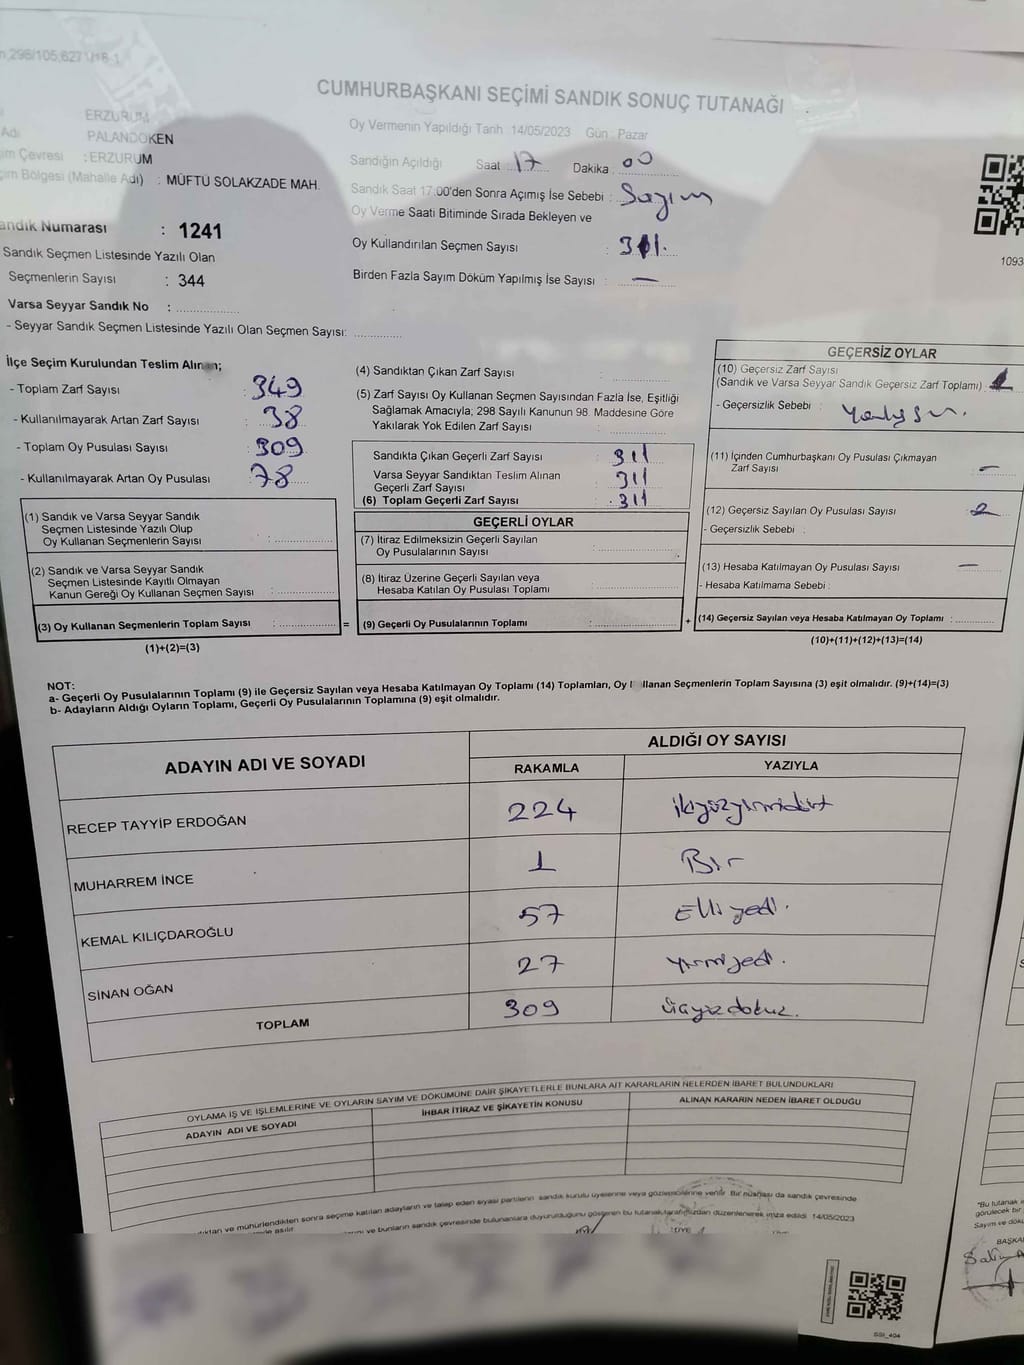 CUMHURBAŞKANI SEÇİMİ SANDIK SONUÇ TUTANAĞI
ERZURUM
PALANDÖKEN
Çevresi : ERZURUM
Bölgesi (Mahalle Adı) : MÜFTÜ SOLAKZADE MAH.
Numarası : 1241
Sandık Seçmen Listesinde Yazılı Olan
Seçmenlerin Sayısı : 344
Varsa Seyyar Sandık No :
- Seyyar Sandık Seçmen Listesinde Yazılı Olan Seçmen Sayısı:
Oy Vermenin Yapıldığı Tarih 14/05/2023 Gün : Pazar
Sandığın Açıldığı Saat 17 Dakika 00
Sandık Saat 17:00'den Sonra Açımış İse Sebebi : Sayım
Oy Verme Saati Bitiminde Sırada Bekleyen ve
Oy Kullandırılan Seçmen Sayısı : 311
Birden Fazla Sayım Döküm Yapılmış İse Sayısı : —
1093
İlçe Seçim Kurulundan Teslim Alınan;
- Toplam Zarf Sayısı : 349
- Kullanılmayarak Artan Zarf Sayısı : 38
- Toplam Oy Pusulası Sayısı : 309
- Kullanılmayarak Artan Oy Pusulası : 78
(1) Sandık ve Varsa Seyyar Sandık
Seçmen Listesinde Yazılı Olup
Oy Kullanan Seçmenlerin Sayısı :
(2) Sandık ve Varsa Seyyar Sandık
Seçmen Listesinde Kayıtlı Olmayan
Kanun Gereği Oy Kullanan Seçmen Sayısı :
(3) Oy Kullanan Seçmenlerin Toplam Sayısı : =
(1)+(2)=(3)
(4) Sandıktan Çıkan Zarf Sayısı :
(5) Zarf Sayısı Oy Kullanan Seçmen Sayısından Fazla İse, Eşitliği
Sağlamak Amacıyla; 298 Sayılı Kanunun 98. Maddesine Göre
Yakılarak Yok Edilen Zarf Sayısı :
Sandıkta Çıkan Geçerli Zarf Sayısı : 311
Varsa Seyyar Sandıktan Teslim Alınan
Geçerli Zarf Sayısı : 311
(6) Toplam Geçerli Zarf Sayısı : 311
GEÇERLİ OYLAR
(7) İtiraz Edilmeksizin Geçerli Sayılan
Oy Pusulalarının Sayısı :
(8) İtiraz Üzerine Geçerli Sayılan veya
Hesaba Katılan Oy Pusulası Toplamı :
(9) Geçerli Oy Pusulalarının Toplamı : +
GEÇERSİZ OYLAR
(10) Geçersiz Zarf Sayısı
(Sandık ve Varsa Seyyar Sandık Geçersiz Zarf Toplamı) :
- Geçersizlik Sebebi :
(11) İçinden Cumhurbaşkanı Oy Pusulası Çıkmayan
Zarf Sayısı : —
(12) Geçersiz Sayılan Oy Pusulası Sayısı : 2
- Geçersizlik Sebebi :
(13) Hesaba Katılmayan Oy Pusulası Sayısı : —
- Hesaba Katılmama Sebebi :
(14) Geçersiz Sayılan veya Hesaba Katılmayan Oy Toplamı :
(10)+(11)+(12)+(13)=(14)
NOT:
a- Geçerli Oy Pusulalarının Toplamı (9) ile Geçersiz Sayılan veya Hesaba Katılmayan Oy Toplamı (14) Toplamları, Oy Kullanan Seçmenlerin Toplam Sayısına (3) eşit olmalıdır. (9)+(14)=(3)
b- Adayların Aldığı Oyların Toplamı, Geçerli Oy Pusulalarının Toplamına (9) eşit olmalıdır.
ADAYIN ADI VE SOYADI ALDIĞI OY SAYISI
RAKAMLA YAZIYLA
RECEP TAYYİP ERDOĞAN 224 ikiyüzyirmidört
MUHARREM İNCE 1 Bir
KEMAL KILIÇDAROĞLU 57 Elli yedi.
SİNAN OĞAN 27 yirmiyedi.
TOPLAM 309 üçyüzdokuz.
OYLAMA İŞ VE İŞLEMLERİNE VE OYLARIN SAYIM VE DÖKÜMÜNE DAİR ŞİKAYETLERLE BUNLARA AİT KARARLARIN NELERDEN İBARET BULUNDUKLARI
ADAYIN ADI VE SOYADI İHBAR İTİRAZ VE ŞİKAYETİN KONUSU ALINAN KARARIN NEDEN İBARET OLDUĞU
ve mühürlendikten sonra seçime katılan adayların ve talep eden siyasi partilerin sandık kurulu üyelerine veya gözlemcilerine verilir. Bir nüshası da sandık çevresinde
ve bunların sandık çevresinde bulunanlara duyurulduğunu gösteren bu tutanak tarafımızdan düzenlenerek imza edildi. 14/05/2023
SSI_404
"Bu tutanak
görülecek bir
Sayım ve